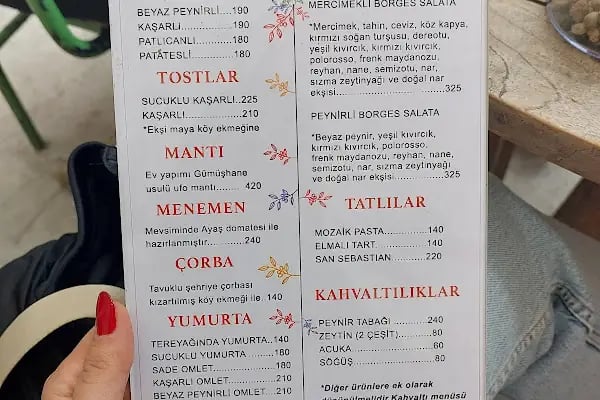 BEYAZ PEYNİRLİ..190
KAŞARLI............190
PATLICANLI.......180
PATATESLİ........180
TOSTLAR
SUCUKLU KAŞARLI..225
KAŞARLI..............210
*Ekşi maya köy ekmeğine
MANTI
Ev yapımı Gümüşhane
usulü ufo mantı...... 420
MENEMEN
Mevsiminde Ayaş domatesi ile
hazırlanmıştır.... .......240
ÇORBA
Tavuklu şehriye çorbası
kızartılmış köy ekmeği ile .140
YUMURTA
TEREYAĞINDA YUMURTA..140
SUCUKLU YUMURTA .........180
SADE OMLET..................180
KAŞARLI OMLET..............210
BEYAZ PEYNİRLİ OMLET..210
MERCİMEKLİ BORGES SALATA
*Mercimek, tahin, ceviz, köz kapya,
kırmızı soğan turşusu, dereotu,
yeşil kıvırcık, kırmızı kıvırcık,
polorosso, frenk maydanozu,
reyhan, nane, semizotu, nar,
sızma zeytinyağı ve doğal nar
ekşisi..............................325
PEYNİRLİ BORGES SALATA
*Beyaz peynir, yeşil kıvırcık,
kırmızı kıvırcık, polorosso,
frenk maydanozu, reyhan, nane,
semizotu, nar, sızma zeytinyağı
ve doğal nar ekşisi..............325
TATLILAR
MOZAİK PASTA...........140
ELMALI TART.............140
SAN SEBASTIAN..........220
KAHVALTILIKLAR
PEYNİR TABAĞI ............240
ZEYTİN (2 ÇEŞİT)..........80
ACUKA ......................60
SÖĞÜŞ ......................80
*Diğer ürünlere ek olarak
düşünülmelidir Kahvaltı menüsü